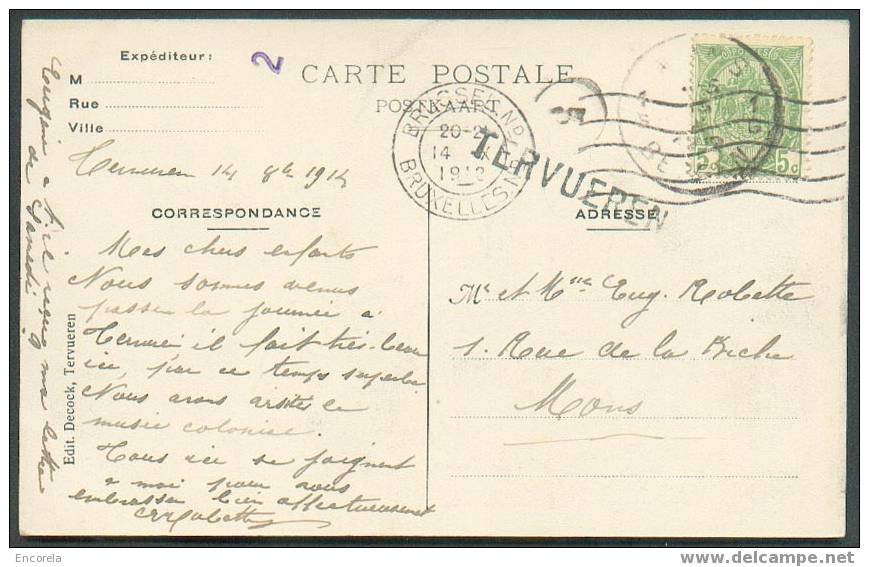 Expéditeur:
M
Rue
Ville
2
CARTE POSTALE
POSTKAART
BRUSSEL Nd
20-2
14
1912
BRUXELLES Nd
TERVUEREN
5
5c
Tervuren 14 8bre 1912
CORRESPONDANCE
ADRESSE
Mes chers enfants
Nous sommes venus
passer la journée à
Tervuren il fait très beau
ici, par ce temps superbe
Nous avons visité le
musée colonial.
Tous ici se joignent
à moi pour vous
embrasser bien affectueusement
Mr et Mme Eug. Robette
1. Rue de la Biche
Mons
ma lettre
de Samedi
Edit. Decock, Tervueren
Encorela
delcampe.net